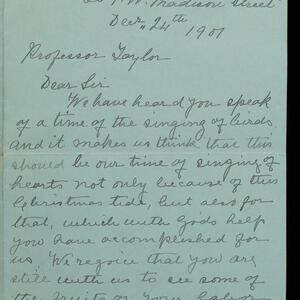 W. Madison Street
Dec. 24th 1901
Professor Taylor
Dear Sir
We have heard you speak
of a time of the singing of birds
and it makes us think that this
should be our time of singing of
hearts not only because of this
Christmas tide, but also for
that, which with Gods help
you have accomplished for
us. We rejoice that you are
still with us to see some of
the fruits of your labor